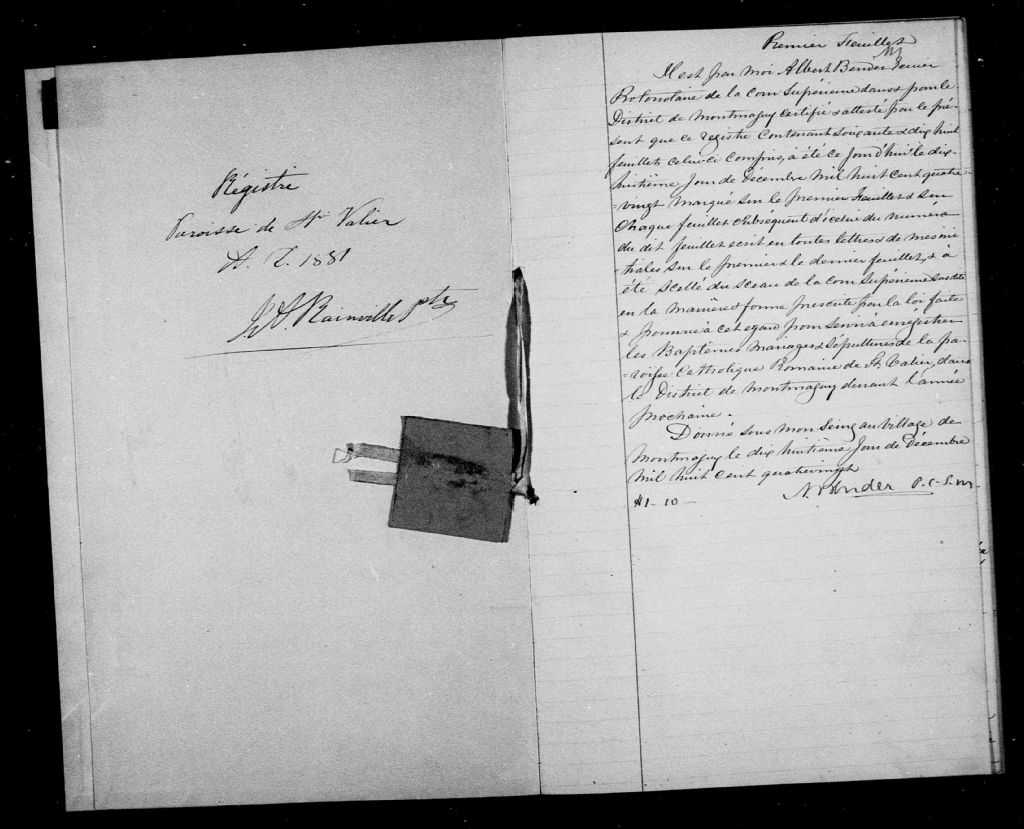 Régistre
Paroisse de St Valier
A. D. 1881
Rainville ptr
Premier Feuillet
Il est par Moi Albert Bender Ecuier
Protonotaire de la Cour Supérieure dans & pour le
District de Montmagny certifié & attesté par le pré-
sent que ce registre contenant soixante & dix huit
feuillets celui-ci compris, a été ce jour d'hui le dix-
huitième jour de Décembre Mil huit cent quatre-
-vingt marqué sur le premier feuillet & sur
Chaque feuillet subséquent d'icelui du numéro
du dit feuillet écrit en toutes lettres & de mes ini
tiales sur le premier & le dernier feuillet, & a
été scellé du sceau de la Cour Supérieure susdite
en la manière & forme prescrite par la loi faite
& pourvue à cet égard pour servir à enrégistrer
les Baptêmes Mariages & Sépultures de la pa-
-roisse Catholique Romaine de St Valier, dans
le District de Montmagny durant l'année
prochaine.
Donné sous mon Seing au Village de
Montmagny le dix huitième jour de Décembre
Mil huit cent quatrevingt
A. Bender P. C. S. M.
$1-10-